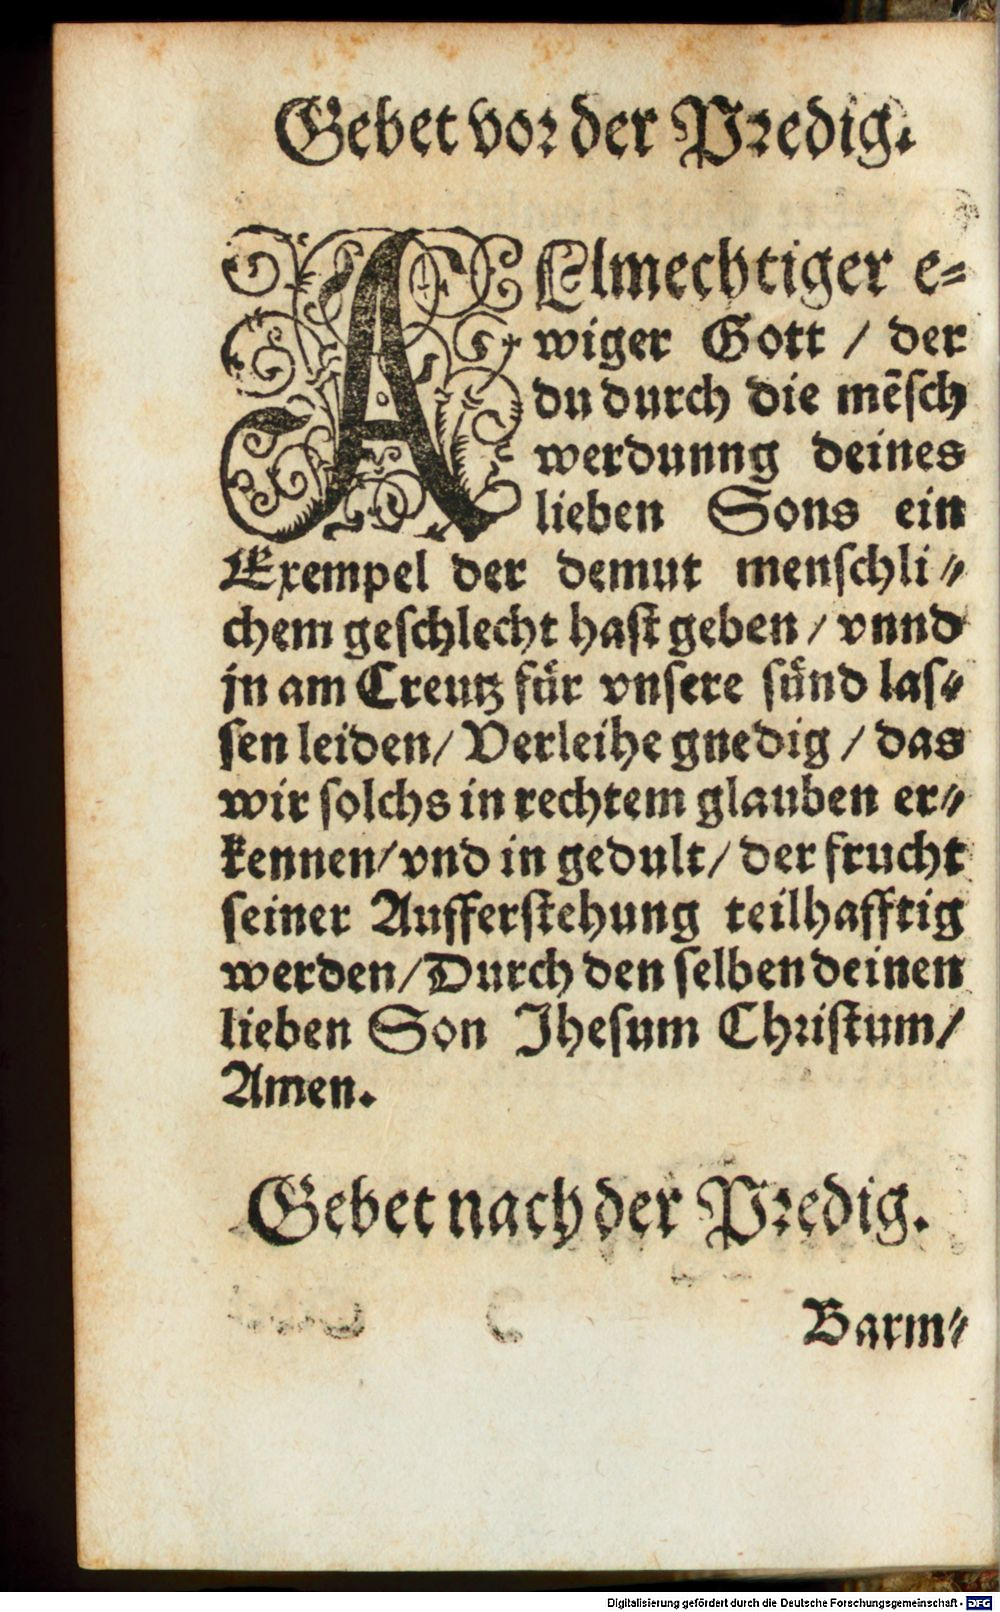 Gebet vor der Predig.
ALlmechtiger e-
wiger Gott / der
du durch die mẽsch
werdunng deines
lieben Sons ein
Exempel der demut menschli-
chem geschlecht hast geben / vnnd
jn am Creutz für vnsere sünd las-
sen leiden / Verleihe gnedig / das
wir solchs in rechtem glauben er-
kennen / vnd in gedult / der frucht
seiner Aufferstehung teilhafftig
werden / Durch den selben deinen
lieben Son Jhesum Christum /
Amen.
Gebet nach der Predig.
Barm-
Digitalisierung gefördert durch die Deutsche Forschungsgemeinschaft - DFG